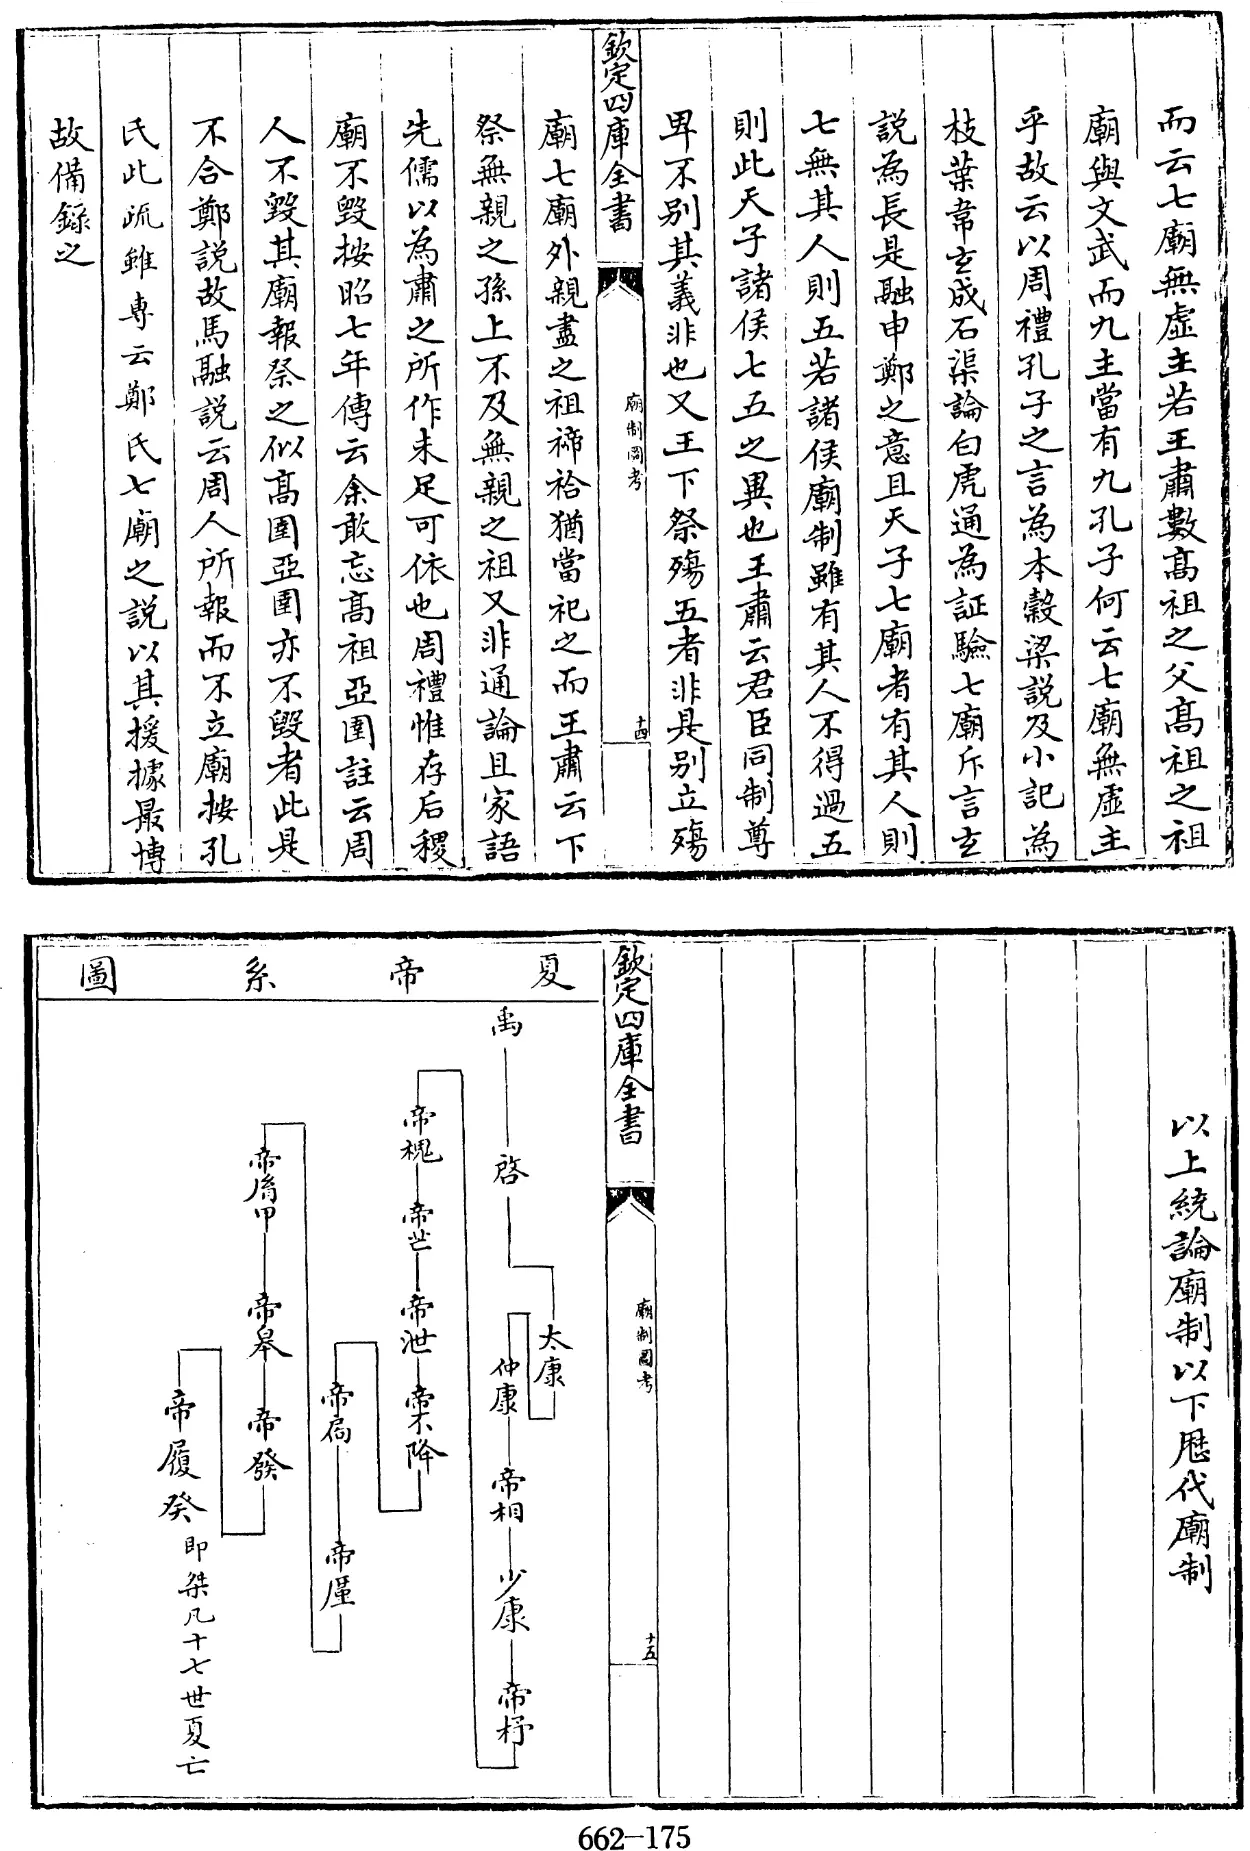 而云七廟無虛主若王肅數高祖之父高祖之祖
廟與文武而九主當有九孔子何云七廟無虛主
乎故云以周禮孔子之言為本穀梁説及小記為
枝葉韋玄成石渠論白虎通為証驗七廟斥言玄
説為長是融申鄭之意且天子七廟者有其人則
七無其人則五若諸侯廟制雖有其人不得過五
則此天子諸侯七五之異也王肅云君臣同制尊
卑不别其義非也又王下祭殤五者非是别立殤
欽定四庫全書
廟制圖考
十四
廟七廟外親盡之祖禘祫猶當祀之而王肅云下
祭無親之孫上不及無親之祖又非通論且家語
先儒以為肅之所作未足可依也周禮惟存后稷
廟不毀按昭七年傳云余敢忘高祖亞圉註云周
人不毀其廟報祭之似高圉亞圉亦不毀者此是
不合鄭説故馬融説云周人所報而不立廟按孔
氏此疏雖專云鄭氏七廟之説以其援據最博
故備録之
以上統論廟制以下歴代廟制
欽定四庫全書
廟制圖考
十五
夏帝系圖
禹
啓
太康
仲康
帝相
少康
帝杼
帝槐
帝芒
帝泄
帝不降
帝扃
帝厪
帝孔甲
帝皋
帝發
帝履癸
即桀凡十七世夏亡
662-175